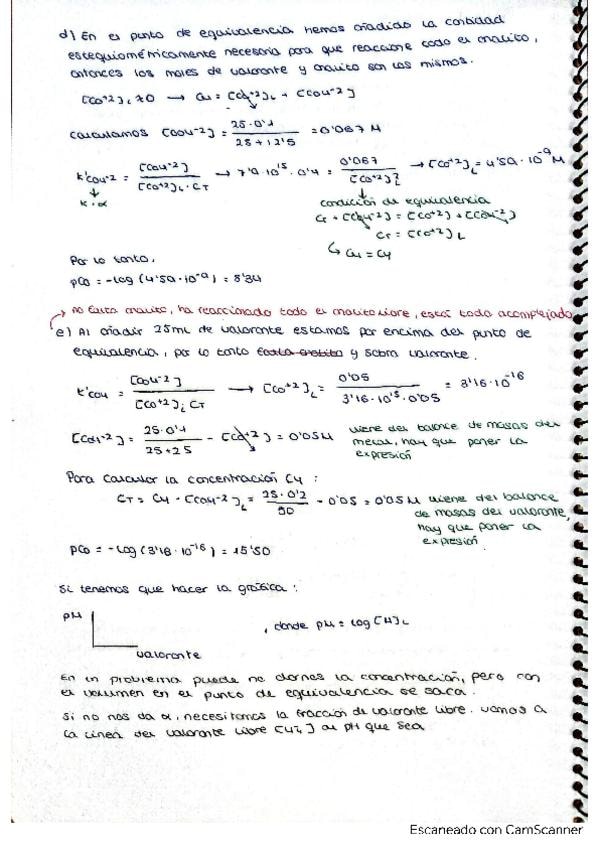 d) En el punto de equivalencia hemos añadido la cantidad
estequiométricamente necesaria para que reaccione todo el analito,
entonces los moles de valorante y analito son los mismos.
[Co+2]L ≠0 → CM = [Co+2]L + [CoY-2]
Calculamos [CoY-2] = 25·0'1 / 25+12'5 = 0'067 M
K'CoY-2 = [CoY-2] / [Co+2]L·CT → = 0'067 / → [Co+2]L = 4'59·10-9 M
K·α
condición de equivalencia
CT + [CoY-2] = [Co+2] + [CoY-2]
CT = [Co+2]L
↳ CM = CY
Por lo tanto,
pCo = -log (4'59·10-9) = 8'34
→ no existe analito, ha reaccionado todo el analito libre, está todo acomplejado
e) Al añadir 25mL de valorante estamos por encima del punto de
equivalencia, por lo tanto y sobra valorante.
K'CoY = [CoY-2] / [Co+2]L CT → [Co+2]L = 0'05 / 3'16·1015·0'05 = 3'16·10-16
[CoY-2] = 25·0'1 / 25+25 - [Co+2] = 0'05M
viene del balance de masas del
metal, hay que poner la
expresión
Para calcular la concentración CY :
CT = CY - [CoY-2]L = 25·0'2 / 50 - 0'05 = 0'05 M
viene del balance
de masas del valorante,
hay que poner la
expresión
pCo = -log (3'16·10-16) = 15'50
Si tenemos que hacer la gráfica :
pM
, donde pM = log [M]L
valorante
En un problema puede no darnos la concentración, pero con
el volumen en el punto de equivalencia se saca.
Si no nos da α, necesitamos la fracción de valorante libre. Vamos a
la línea del valorante libre al pH que sea
Escaneado con CamScanner